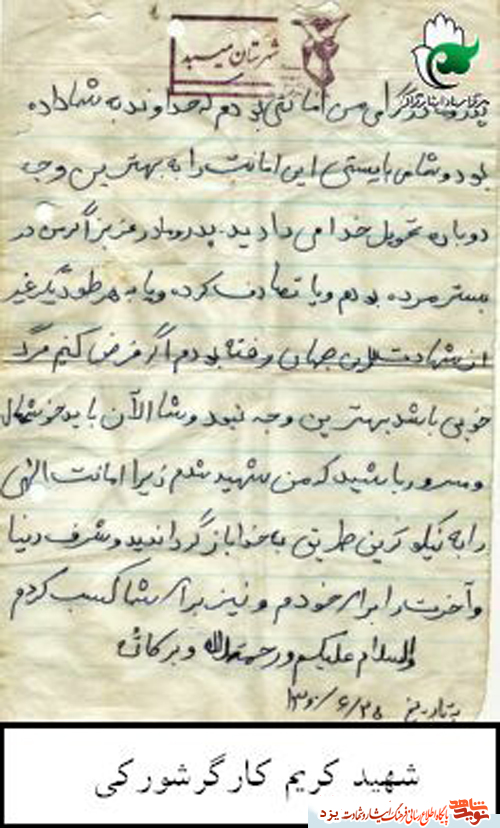 شهرستان میبد
پدر و مادر گرامی من امانتی بودم که خداوند به شما داده
بود و شما می بایستی این امانت را به بهترین وجه
دوباره تحویل خدا می دادید. پدر و مادر عزیز اگر من در
بستر مرده بودم و یا تصادف کرده و یا به هر طور دیگر غیر
از شهادت از این جهان رفته بودم اگر فرض کنیم مرگ
خوبی باشد بهترین وجه نبود و شما الآن باید خوشحال
و مسرور باشید که من شهید شدم زیرا امانت الهی
را به نیکوترین طریق به خدا باز گرداندید و شرف دنیا
و آخرت را برای خودم و نیز برای شما کسب کردم
والسلام علیکم و رحمة الله و برکاته
به تاریخ
شهید کریم کارگر شورکی
نوید شاهد پایگاه اطلاع رسانی فرهنگ ایثار و شهادت یزد